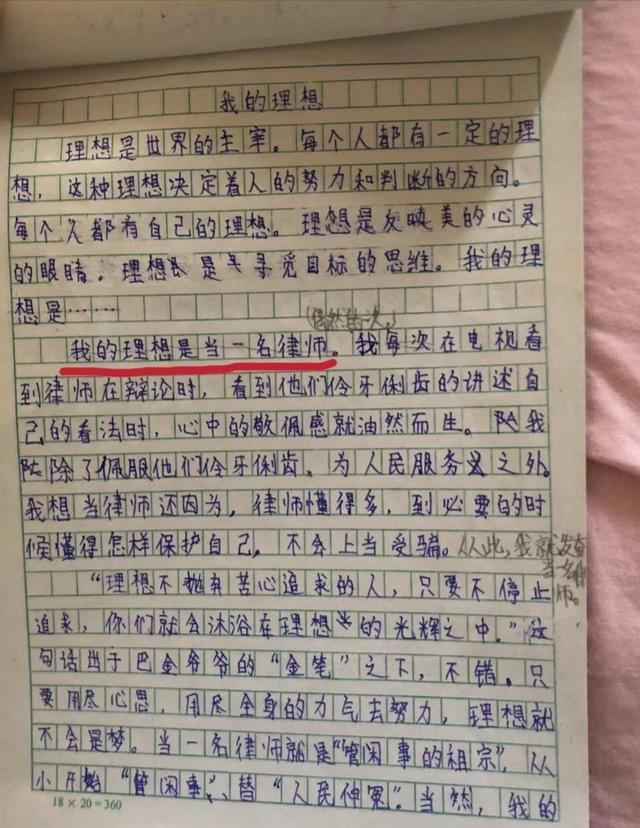 我的理想
理想是世界的主宰。每个人都有一定的理
想，这种理想决定着人的努力和判断的方向。
每个人都有自己的理想。理想是反映美的心灵
的眼睛。理想是寻觅目标的思维。我的理
想是……
我的理想是当一名律师。我每次在电视看
到律师在辩论时，看到他们伶牙俐齿的讲述自
己的看法时，心中的敬佩感就油然而生。我
除了佩服他们伶牙俐齿、为人民服务之外。
我想当律师还因为，律师懂得多，到必要的时
候懂得怎样保护自己，不会上当受骗。从此，我就发奋
当名律
师。
“理想不抛弃苦心追求的人，只要不停止
追求，你们就会沐浴在理想的光辉之中。”这
句话出于巴金爷爷的“金笔”之下，不错。只
要用尽心思，用尽全身的力气去努力，理想就
不会是梦。当一名律师就是“管闲事的祖宗”，从
小开始“管闲事”、替“人民伸冤”。当然，我的
18×20=360